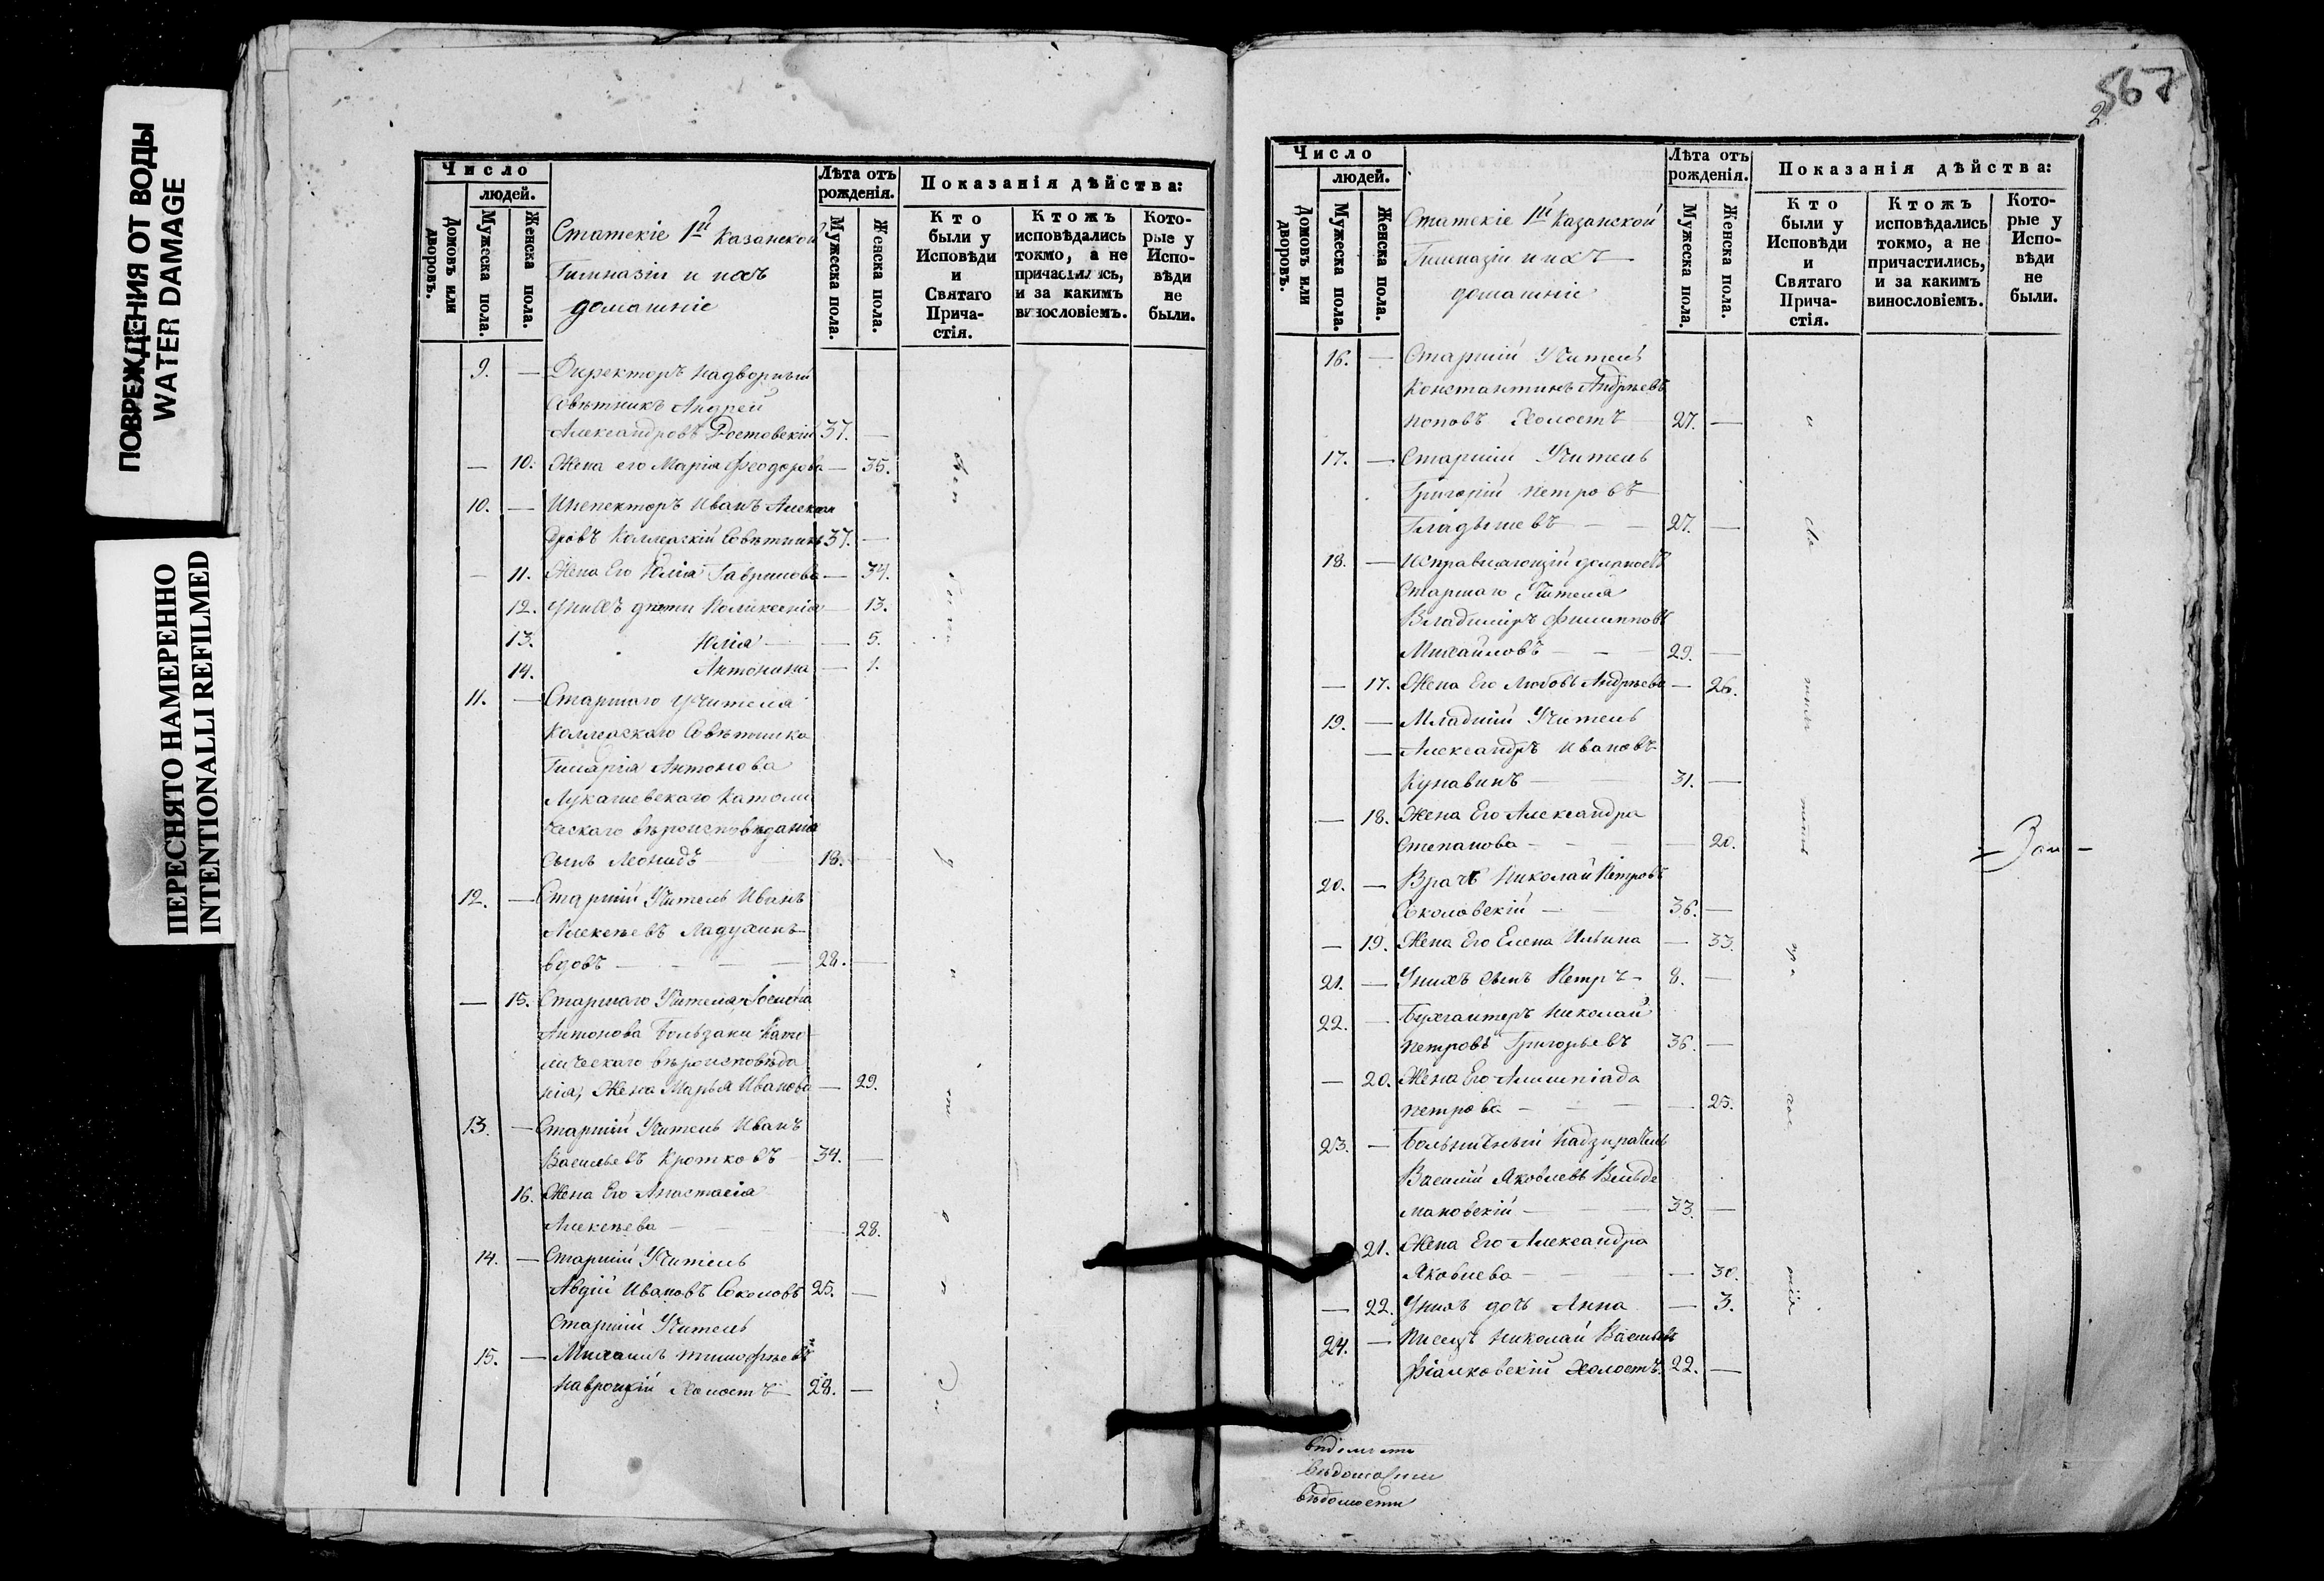 ПОВРЕЖДЕНИЯ ОТ ВОДЫ
WATER DAMAGE
ПЕРЕСНЯТО НАМЕРЕННО
INTENTIONALLI REFILMED
Число
людей.
Домовъ или дворовъ.
Мужеска пола.
Женска пола.
Статскіе 1й Казанской
Гимназіи и ихъ
домашніе
Лѣта отъ рожденія.
Мужеска пола.
Женска пола.
Показанія дѣйства:
Кто были у Исповѣди и Святаго Прича-стія.
Ктожъ исповѣдались токмо, а не причастились, и за какимъ винословіемъ.
Кото-рые у Испо-вѣди не были.
9. — Директоръ Надворный
Совѣтникъ Андрей
Александровъ Ростовскій 37. —
— 10. Жена его Марія Феодорова — 35.
10. — Инспекторъ Иванъ Алексан
дровъ Коллежскій Совѣтникъ 37. —
— 11. Жена Его Юлія Гаврилова — 34.
12. У нихъ дѣти Поликсенія — 13.
13. Юлія — 5.
14. Антонина — 1.
11. — Старшаго Учителя
Коллежскаго Совѣтника
Гиларія Антонова
Лукашевскаго Католи
ческаго вѣроисповѣданія
сынъ Леонидъ 18. —
12. — Старшій Учитель Иванъ
Алексѣевъ Ладухинъ
вдовъ — 28. —
— 15. Старшаго Учителя Іосифа
Антонова Бользани Като
лическаго вѣроисповѣда
нія, Жена Марья Иванова — 29.
13. — Старшій Учитель Иванъ
Васильевъ Кротковъ 34. —
16. Жена Его Анастасія
Алексѣева — 28.
14. — Старшій Учитель
Авдій Ивановъ Соколовъ 25. —
Старшій Учитель
15. — Михаилъ Тимофѣевъ
Навроцкій Холостъ 28. —
567
2
Число
людей.
Домовъ или дворовъ.
Мужеска пола.
Женска пола.
Статскіе 1й Казанской
Гимназіи и ихъ
домашніе
Лѣта отъ рожденія.
Мужеска пола.
Женска пола.
Показанія дѣйства:
Кто были у Исповѣди и Святаго Прича-стія.
Ктожъ исповѣдались токмо, а не причастились, и за какимъ винословіемъ.
Кото-рые у Испо-вѣди не были.
16. — Старшій Учитель
Константинъ Андрѣевъ
Поповъ Холостъ 27. —
17. — Старшій Учитель
Григорій Петровъ
Гладышевъ — 27. —
18. — Исправляющій должность
Старшаго Учителя
Владиміръ Филипповъ
Михайловъ — 29. —
— 17. Жена Его Любовь Андрѣева — 26.
19. — Младшій Учитель
— Александръ Ивановъ
Кунавинъ — 31. —
— 18. Жена Его Александра
Степанова — 20.
20. — Врачъ Николай Петровъ
Соколовскій — 36. —
— 19. Жена Его Елена Ильина — 33.
21. — У нихъ сынъ Петръ — 8. —
22. — Бухгалтеръ Николай
Петровъ Григорьевъ 36. —
— 20. Жена Его Алимпіада
Петрова — 25.
23. — Больничный Надзиратель
Василій Яковлевъ Вильде
мановскій — 33. —
21. Жена Его Александра
Яковлева — 30.
— 22. У нихъ дочь Анна — 3.
24. — Писецъ Николай Васильевъ
Фіалковскій Холостъ. 22. —
вѣдомости
вѣдомости
вѣдомости